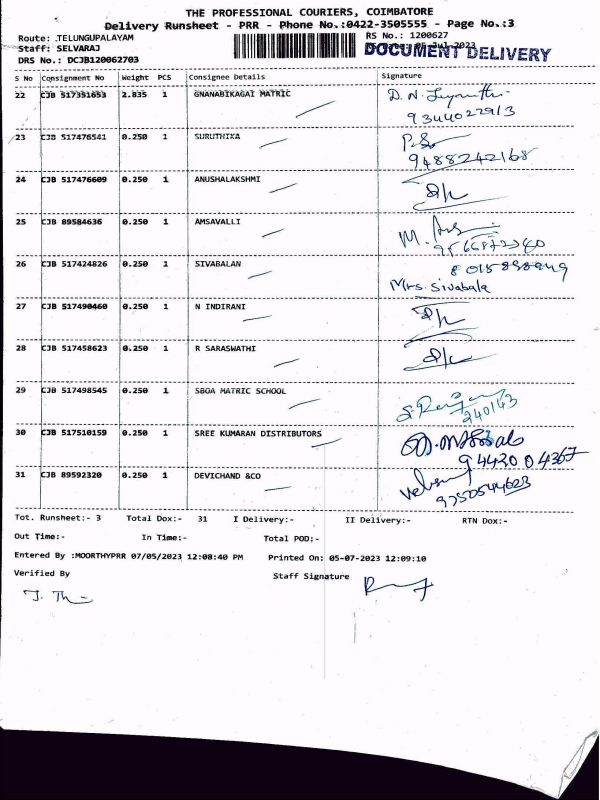 THE PROFESSIONAL COURIERS, COIMBATORE
Delivery Runsheet - PRR - Phone No.:0422-3505555 - Page No.:3
Route: .TELUNGUPALAYAM RS No.: 1200627
Staff: SELVARAJ 05-Jul-2023 DOCUMENT DELIVERY
DRS No.: DCJB120062703
S No Consignment No Weight PCS Consignee Details Signature
22 CJB 517351653 2.835 1 GNANABIKAGAI MATRIC D.N.
9344022913
23 CJB 517476541 0.250 1 SURUTHIKA
9488242168
24 CJB 517476609 0.250 1 ANUSHALAKSHMI
25 CJB 89584636 0.250 1 AMSAVALLI M.
26 CJB 517424826 0.250 1 SIVABALAN
Mrs. Sivabala
27 CJB 517490460 0.250 1 N INDIRANI
28 CJB 517458623 0.250 1 R SARASWATHI
29 CJB 517498545 0.250 1 SBOA MATRIC SCHOOL
240143
30 CJB 517510159 0.250 1 SREE KUMARAN DISTRIBUTORS
94420 04367
31 CJB 89592320 0.250 1 DEVICHAND &CO
Tot. Runsheet:- 3 Total Dox:- 31 I Delivery:- II Delivery:- RTN Dox:-
Out Time:- In Time:- Total POD:-
Entered By :MOORTHYPRR 07/05/2023 12:08:40 PM Printed On: 05-07-2023 12:09:10
Verified By Staff Signature